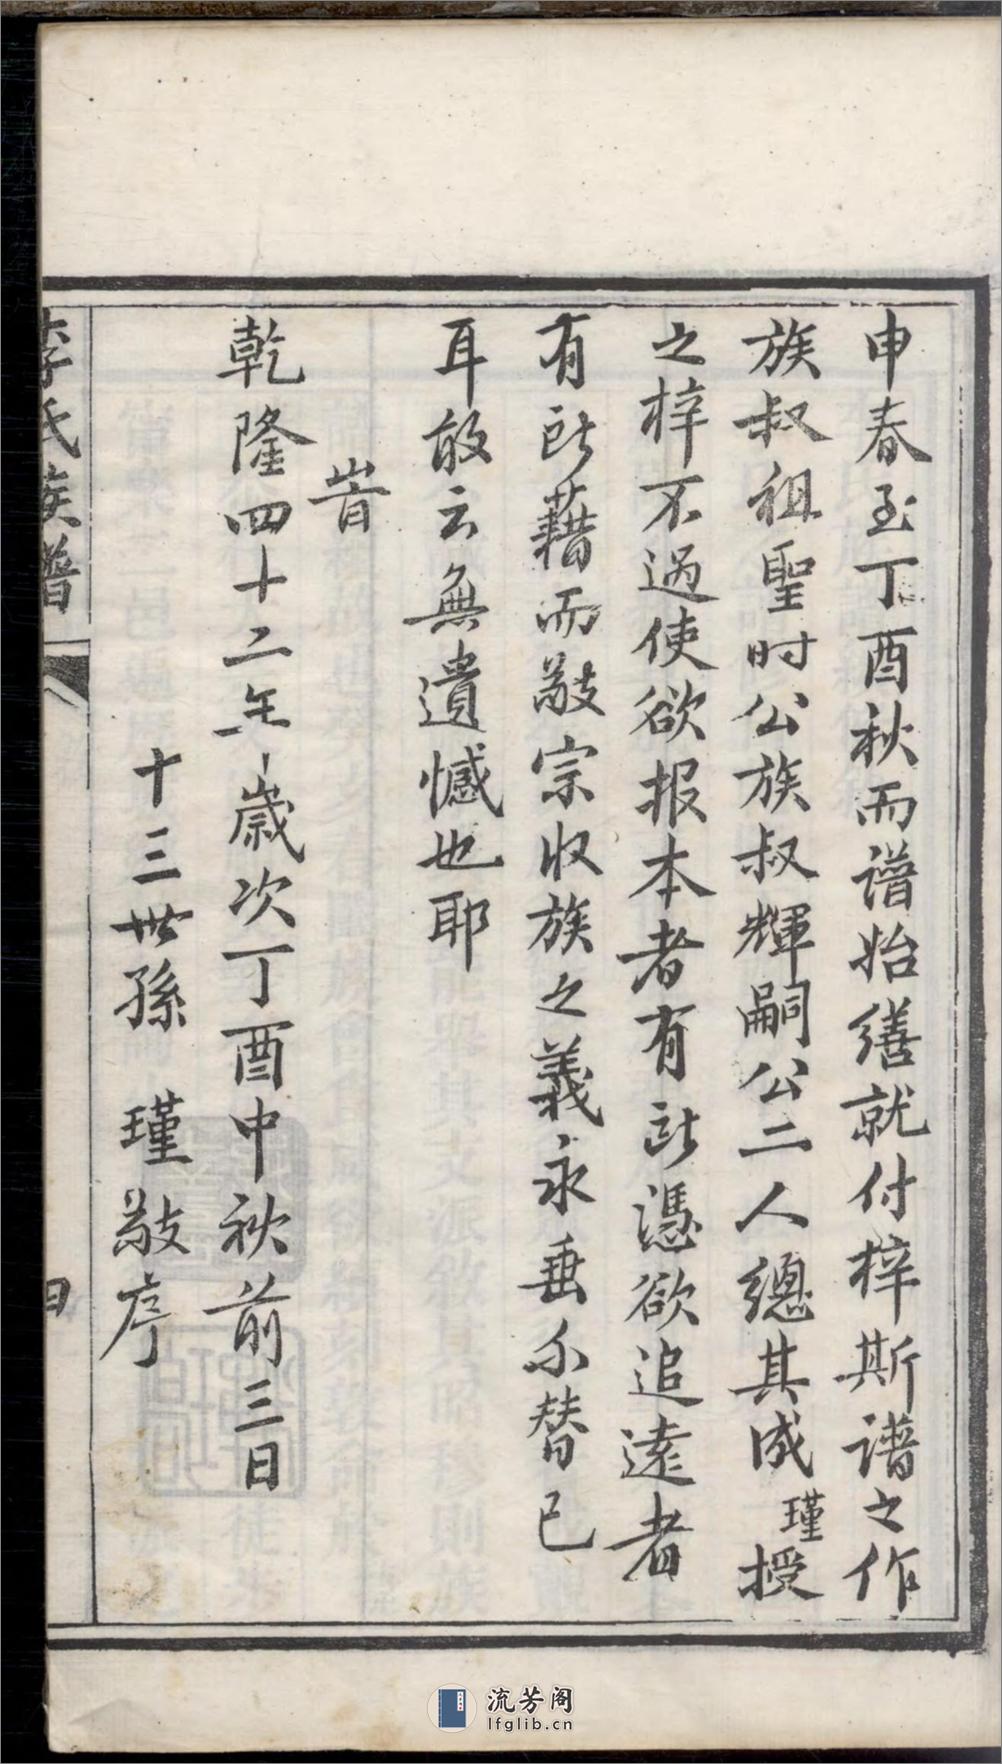 申春至丁酉秋而譜始繕就付梓斯譜之作
族叔祖聖时公族叔輝嗣公二人總其成瑾授
之梓不過使欲报本者有所憑欲追遠者
有所藉而敬宗收族之義永垂不替已
耳敢云無遺憾也耶
旹
乾隆四十二年歲次丁酉中秋前三日
十三世孫 瑾敬序
李氏族譜
流芳阁
lfglib.cn